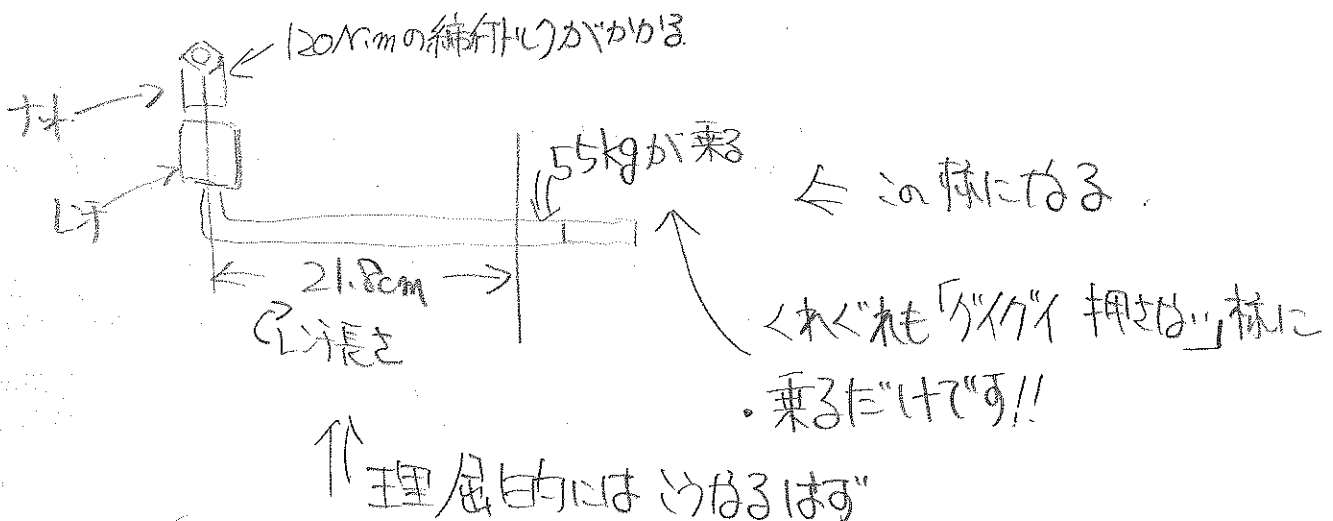 120N・mの締付トルクがかかる
ナット
レンチ
55kgが乗る
⇐ この様になる.
21.8cm
レンチ長さ
くれぐれも「グイグイ 押さない」様に
・乗るだけです!!
理屈的にはこうなるはず